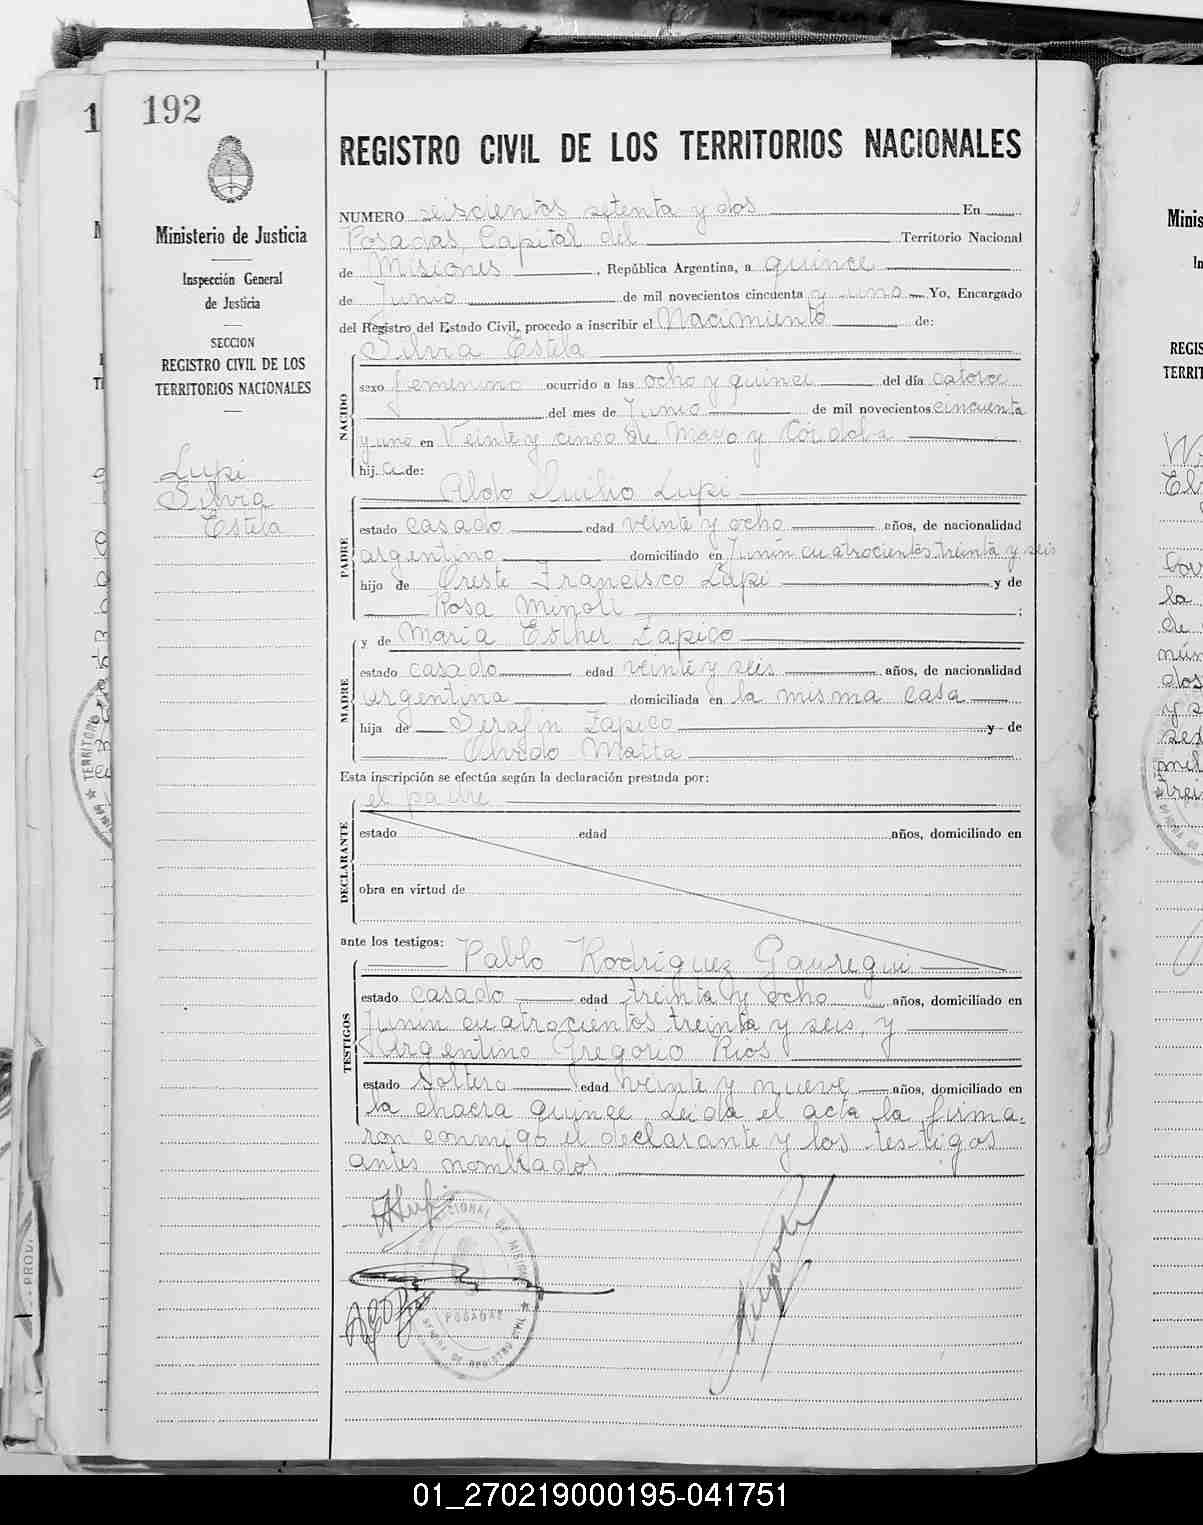 192
REGISTRO CIVIL DE LOS TERRITORIOS NACIONALES
Ministerio de Justicia
Inspección General
de Justicia
SECCION
REGISTRO CIVIL DE LOS
TERRITORIOS NACIONALES
Lupi
Silvia
Estela
NUMERO seiscientos setenta y dos En
Posadas, Capital del Territorio Nacional
de Misiones, República Argentina, a quince
de Junio de mil novecientos cincuenta y uno Yo, Encargado
del Registro del Estado Civil, procedo a inscribir el Nacimiento de:
Silvia Estela
NACIDO
sexo femenino ocurrido a las ocho y quince del día catorce
del mes de Junio de mil novecientos cincuenta
y uno en Veinte y cinco de Mayo y Córdoba
hij a de:
Aldo Duilio Lupi
PADRE
estado casado edad veinte y ocho años, de nacionalidad
argentino domiciliado en Junín cuatrocientos treinta y seis
hijo de Oreste Francisco Lupi y de
Rosa Minoli;
y de María Esther Zapico
MADRE
estado casado edad veinte y seis años, de nacionalidad
argentina domiciliada en la misma casa
hija de Serafín Zapico y de
Matta
Esta inscripción se efectúa según la declaración prestada por:
el padre
DECLARANTE
estado edad años, domiciliado en
obra en virtud de
ante los testigos:
Pablo Rodríguez Gauregui
TESTIGOS
estado casado edad treinta y ocho años, domiciliado en
Junín cuatrocientos treinta y seis, y
Argentino Gregorio Rios
estado Soltero edad veinte y nueve años, domiciliado en
la chacra quince. Leida el acta la firma-
ron conmigo el declarante y los testigos
antes nombrados
ALupi
POSADAS
01_270219000195-041751